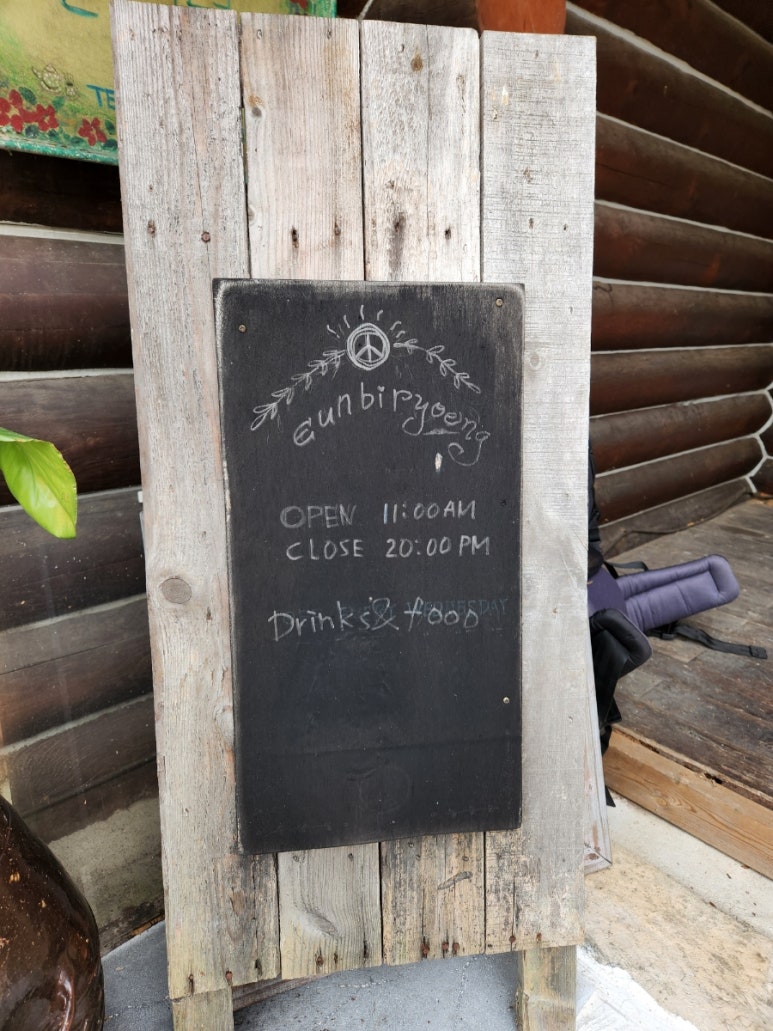 eunbipyoeng
OPEN 11:00AM
CLOSE 20:00 PM
WEDNESDAY
Drinks & food